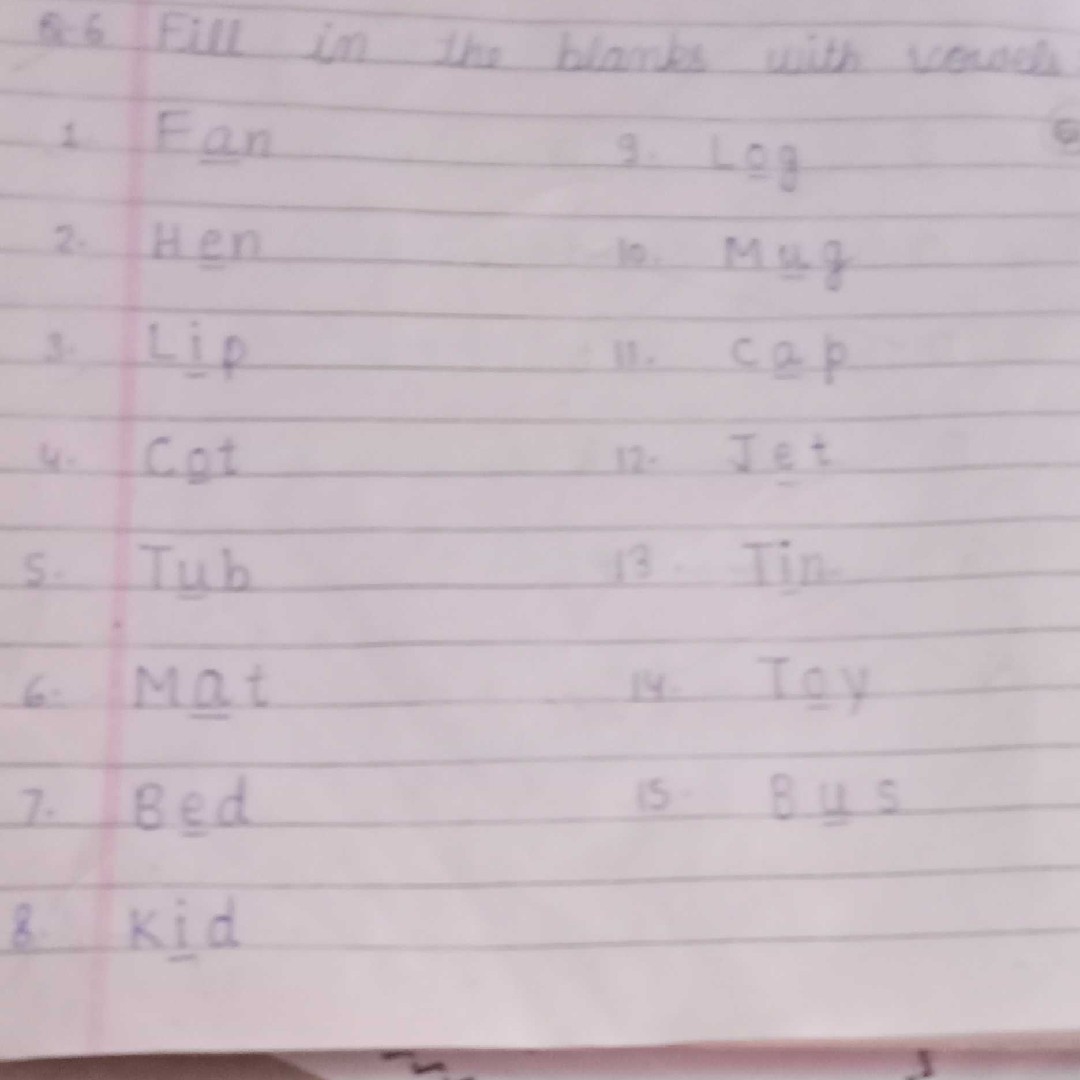 Q-6 Fill in the blanks with vowels
1. Fan 9. Log
2. Hen 10. Mug
3. Lip 11. Cap
4. Cot 12. Jet
5. Tub 13. Tin
6. Mat 14. Toy
7. Bed 15. Bus
8. Kid